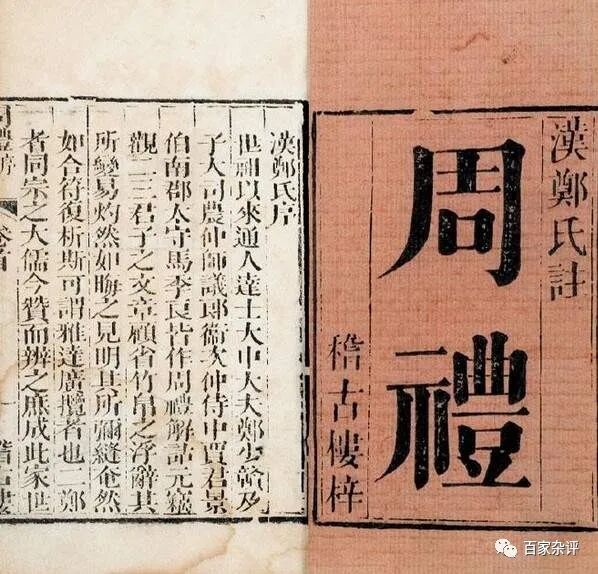 漢鄭氏註
周禮
稽古樓梓
漢鄭氏序
世祖以來通人達士大中大夫鄭少贛及
子大司農仲師議郎衛次仲侍中賈君景
伯南郡太守馬季長皆作周禮解詁元竊
觀二三君子之文章顧省竹帛之浮辭其
所變易灼然如晦之見明其所彌縫奄然
如合符復析斯可謂雅達廣攬者也二鄭
者同宗之大儒今贊而辨之庶成此家世
周禮序 卷首 一 稽古樓
百家杂评